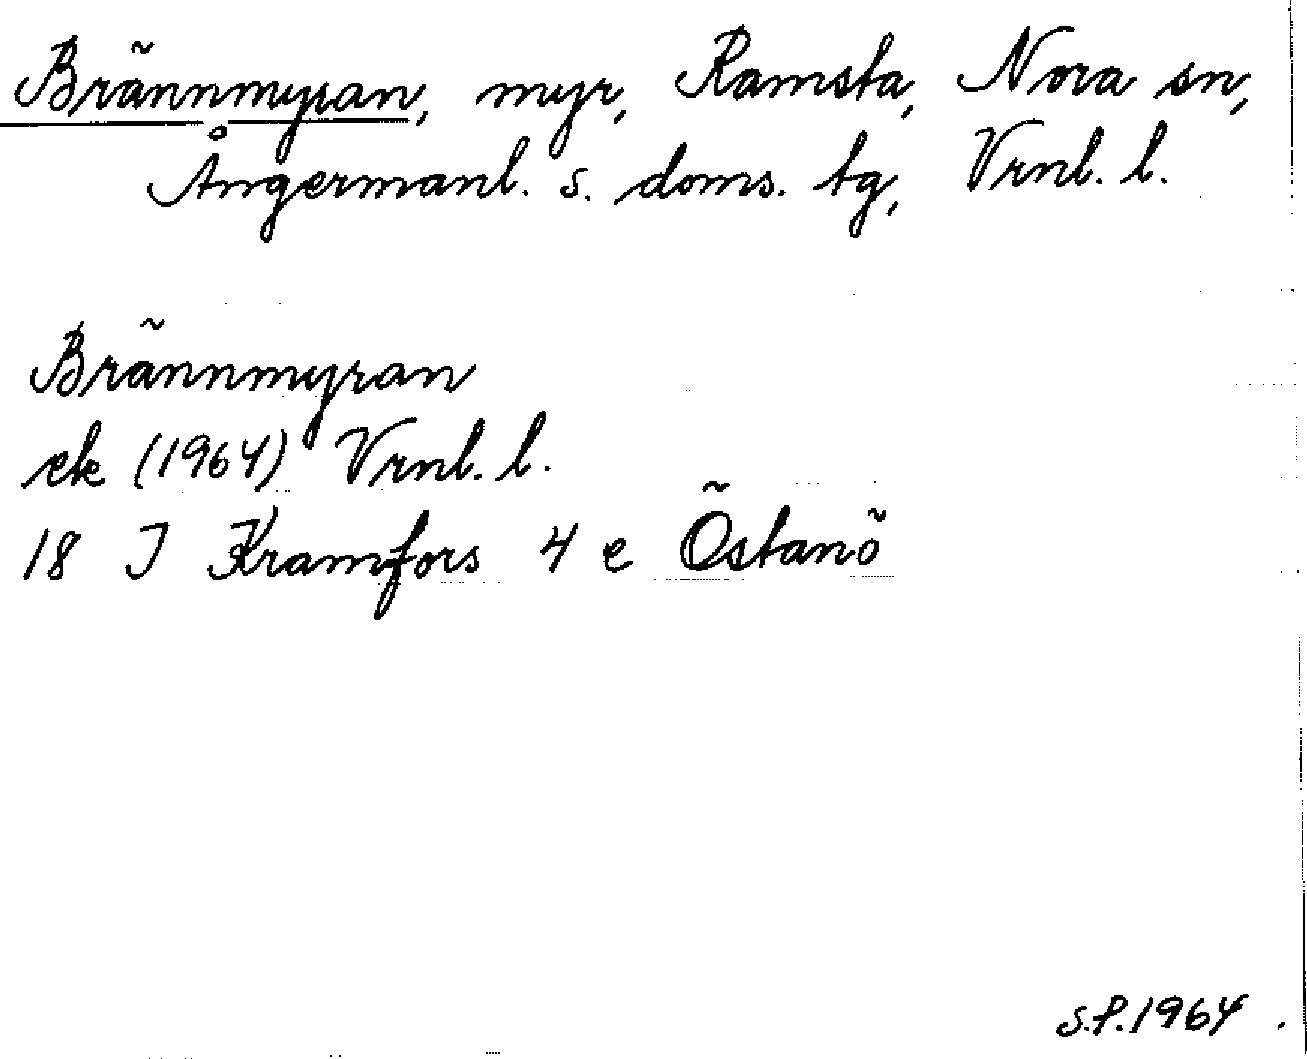 Brännmyran, myr, Ramsta, Nora sn,
Ångermanl. s. doms. tg, Vrnl. l.
Brännmyran
ek (1964) Vrnl. l.
18 I Kramfors 4 e Östanö
S.P. 1964